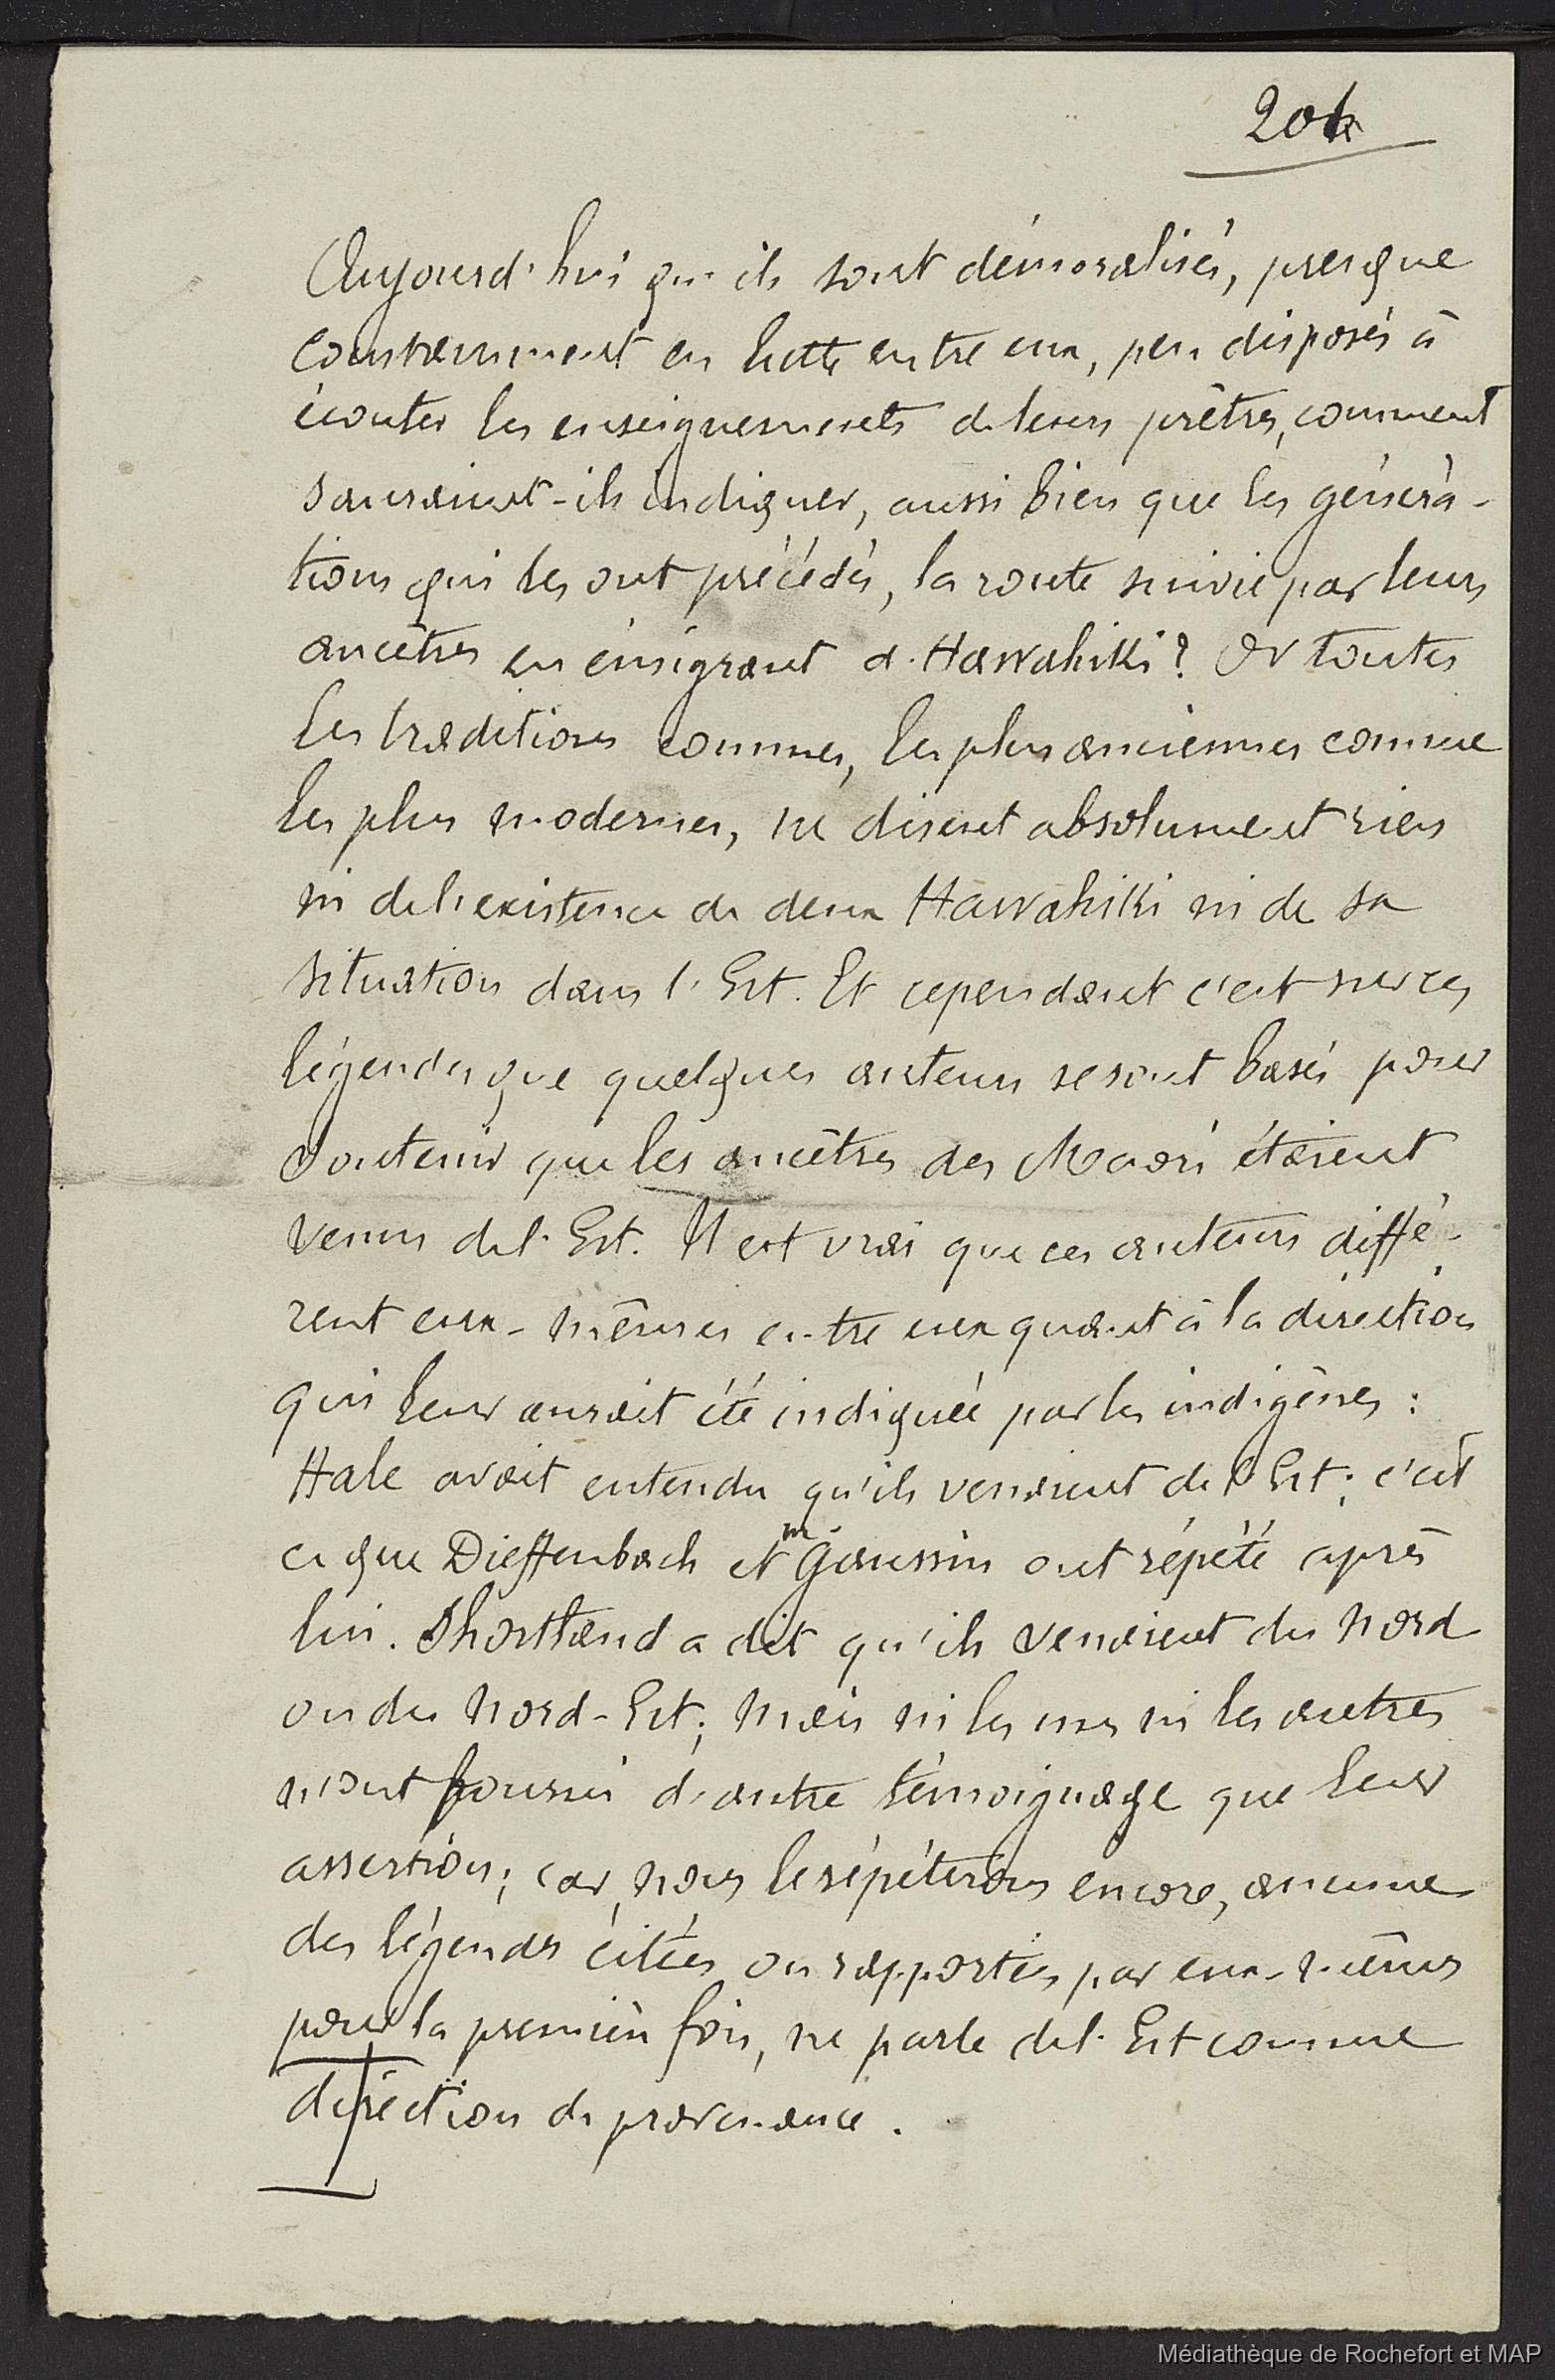 Aujourd'hui qu'ils sont démoralisés, presque
constamment en lutte entre eux, peu disposés à
écouter les enseignements de leurs prêtres, comment
sauraient-ils indiquer, aussi bien que les généra-
tions qui les ont précédés, la route suivie par leurs
ancêtres en émigrant d'Hawahiki? Or toutes
les traditions connues, les plus anciennes comme
les plus modernes, ne disent absolument rien
ni de l'existence de deux Hawahiki ni de sa
situation dans l'Est. Et cependant c'est sur ces
légendes que quelques auteurs se sont basés pour
soutenir que les ancêtres des Maori étaient
venus de l'Est. Il est vrai que ces auteurs diffé-
rent eux-mêmes entre eux quant à la direction
qui leur aurait été indiquée par les indigènes:
Hale avait entendu qu'ils venaient de l'Est; c'est
ce que Dieffenbach et Mr Gaussin ont répété après
lui. Shortland a dit qu'ils venaient du Nord
ou du Nord-Est; mais ni les uns ni les autres
n'ont fourni d'autre témoignage que leur
assertion; car, nous le répéterons encore, aucune
des légendes citées ou rapportées par eux-mêmes
pour la première fois, ne parle de l'Est comme
direction de provenance.
Médiathèque de Rochefort et MAP